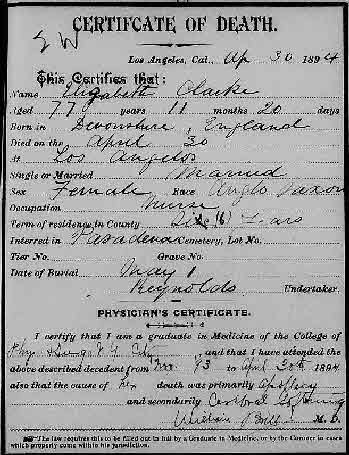 CERTIFCATE OF DEATH.
Los Angeles, Cal., Ap 30 1894
This Certifies that:
Name Elizabeth Clarke
Aged 77 years 11 months 20 days
Born in Devonshire, England
Died on the April 30
At Los Angeles
Single or Married Married
Sex Female Race Anglo Saxon
Occupation Nurse
Term of residence in County Six (6) Years
Interred in Pasadena Cemetery, Lot No.
Tier No. Grave No.
Date of Burial May 1
Reynolds Undertaker.
PHYSICIAN'S CERTIFICATE.
I certify that I am a graduate in Medicine of the College of
Phy , and that I have attended the
above described decedent from 93 to April 30th 1894
also that the cause of her death was primarily Apoplexy
and secondarily Cerebral Softening
William M. D.
The law requires this to be filled out in full by a Graduate in Medicine, or by the Coroner in cases
which properly come within his jurisdiction.